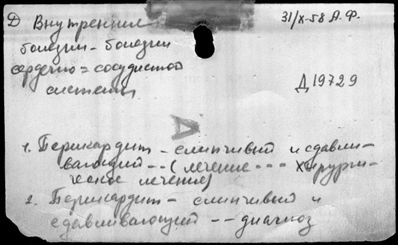 Д Внутренние
31/X-58 А.Ф.
болезни - болезни
сердечно = сосудистой
системы
Д 19729
А
1. Перикардит - слипчивый и сдавли-
вающий -- (лечение --- хирурги-
ческое лечение)
2. Перикардит - слипчивый и
сдавливающий -- диагноз